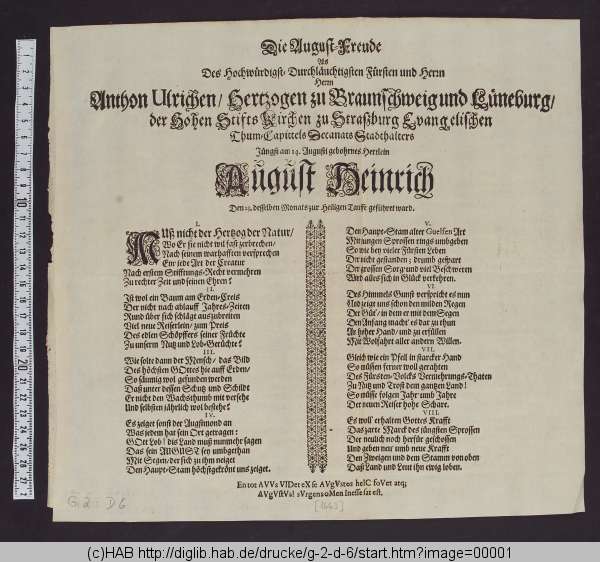 Die August-Freude
Als
Des Hochwürdigst-Durchläuchtigsten Fürsten und Herrn
Herrn
Anthon Ulrichen/ Hertzogen zu Braunschweig und Lüneburg/
der Hohen Stifts Kirchen zu Straßburg Evangelischen
Thum-Capittels Decanats Stadthalters
Jüngst am 14. Augusti gebohrnes Herrlein
August Heinrich
Den 23. desselben Monats zur Heiligen Tauffe geführet ward.
I.
MUß nicht der Hertzog der Natur/
Wo Er sie nicht wil fast zerbrechen/
Nach seinem warhafften versprechen
Ein iede Art der Creatur
Nach erstem Stifftungs-Recht vermehren
Zu rechter Zeit und seinen Ehren?
II.
Ist wol ein Baum am Erden-Creis
Der nicht nach ablauff Jahres-Zeiten
Rund über sich schlägt auszubreiten
Viel neue Reiserlein/ zum Preis
Des edlen Schöpffers seiner Früchte
Zu unserm Nutz und Lob-Gerüchte?
III.
Wie solte dann der Mensch/ das Bild
Des höchsten GOttes hie auff Erden/
So säumig wol gefunden werden
Daß unter dessen Schutz und Schild
Er nicht den Wachsthumb mit versehe
Und selbsten jährlich wol bestehe?
IV.
Es zeiget sonst der Augstmond an
Was jedem hat sein Ort getragen:
GOtt Lob! dis Land muß nunmehr sagen
Das sein AUGUST sey umbgethan
Mit Segen/ der sich zu ihm neiget
Den Haupt-Stam höchstgekrönt uns zeiget.
V.
Den Haupt-Stam alter Guelfen Art
Mit jungen Sprossen rings umbgeben
So wie bey vieler Fürsten Leben
Dir nicht gestanden; drumb gespart
Der grossen Sorg und viel Beschweren
Wird alles sich in Glück verkehren.
VI.
Des Himmels Gunst verspricht es nun
Und zeigt uns schon den milden Regen
Der Güt/ in dem er mit dem Segen
Den Anfang macht/ es dar zu thun
An hoher Hand/ und zu erfüllen
Mit Wolfahrt aller andern Willen.
VII.
Gleich wie ein Pfeil in starcker Hand
So müssen ferner woll gerahten
Des Fürsten-Volcks Vermehrungs-Thaten
Zu Nutz und Trost dem gantzen Land!
So müsse folgen Jahr umb Jahre
Der neuen Reiser hohe Schare.
VIII.
Es woll erhalten Gottes Krafft
Das zarte Marck des jüngsten Sprossen
Der neulich noch herfür geschossen
Und geben neu und neue Krafft
Den Zweigen und dem Stamm von oben
Daß Land und Leut ihn ewig loben.
En tot AVVs VIDet eX se AVgVstos helC foVet atq;
AVgVstVs! sVrgens oMen Inesse sat est.
G 2 : D 6
[1663]
(c)HAB http://diglib.hab.de/drucke/g-2-d-6/start.htm?image=00001